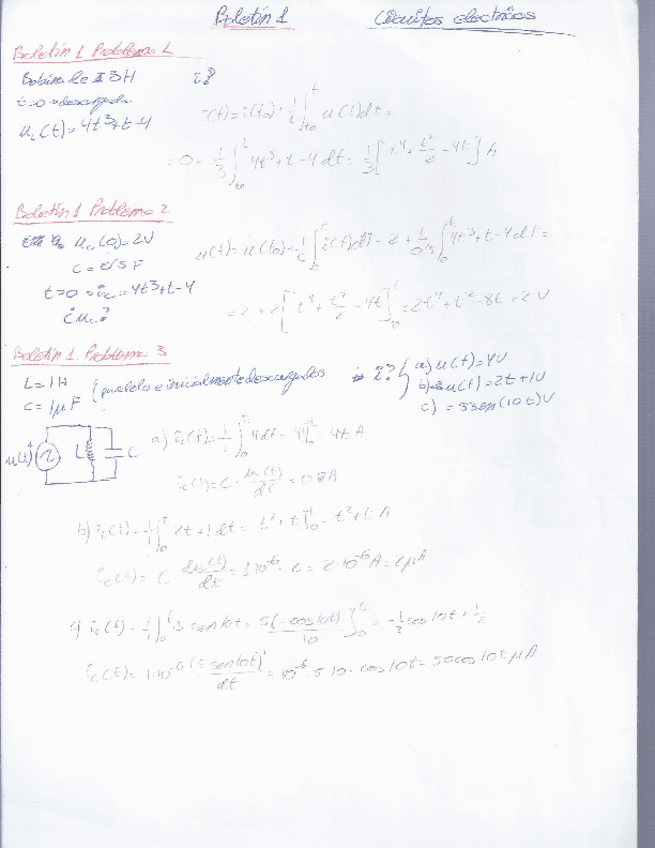 Boletín 1 Circuitos electricos
Boletín 1 Problema 1
Bobina de 3H i?
t=0 → descargada
u_L(t)=4t³+t-4
i(t)=i(t₀)+1/L∫_{t₀}^{t} u(t)dt=
=0+1/3∫_{t₀}^{t} 4t³+t-4 dt=1/3[t⁴+t²/2-4t] A
Boletín 1 Problema 2
u_c(0)=2V
C=0'5F
t=0 → i_c=4t³+t-4
¿u_c?
u(t)=u(t₀)+1/C∫i(t)dt=2+1/0'5∫_{0}^{t} 4t³+t-4 dt=
=2+2[t⁴+t²/2-4t]_{0}^{t}=2t⁴+t²-8t+2V
Boletín 1. Problema 3
L=1H
C=1μF
paralelo e inicialmente descargados i?
a) u(t)=4V
b) u(t)=2t+1V
c) =5sen(10t)V
u(t) + L C
a) i_L(t)=1/1∫_{0}^{t} 4dt=4t]_{0}^{t}=4t A
i_c(t)=C·du(t)/dt=0 A
b) i_L(t)=1/1∫_{0}^{t} 2t+1dt=t²+t]_{0}^{t}=t²+t A
i_c(t)=C du(t)/dt=1·10⁻⁶·2=2·10⁻⁶A=2μA
c) i_L(t)=1/1∫_{0}^{t} 5 sen10t=5(-cos10t)/10]_{0}^{t}=-1/2cos10t+1/2
i_c(t)=1·10⁻⁶(5 sen10t)'/dt=10⁻⁶·5·10·cos10t=50cos10t μA